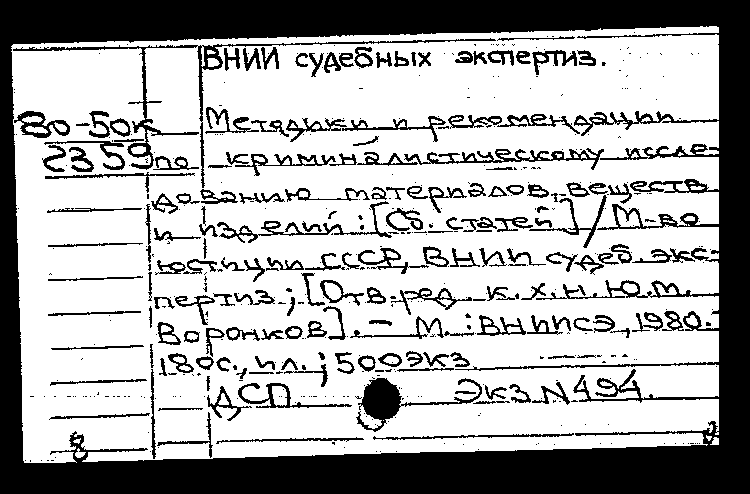 ВНИИ судебных экспертиз.
80-50к Методики и рекомендации
2359 по криминалистическому иссле-
дованию материалов, веществ
и изделий : [Сб. статей] / М-во
юстиции СССР, ВНИИ судеб. экс-
пертиз ; [Отв. ред. к. х. н. Ю. М.
Воронков]. - М. : ВНИИСЭ, 1980. -
180с., ил. ; 500экз
ДСП. Экз N 494.
8